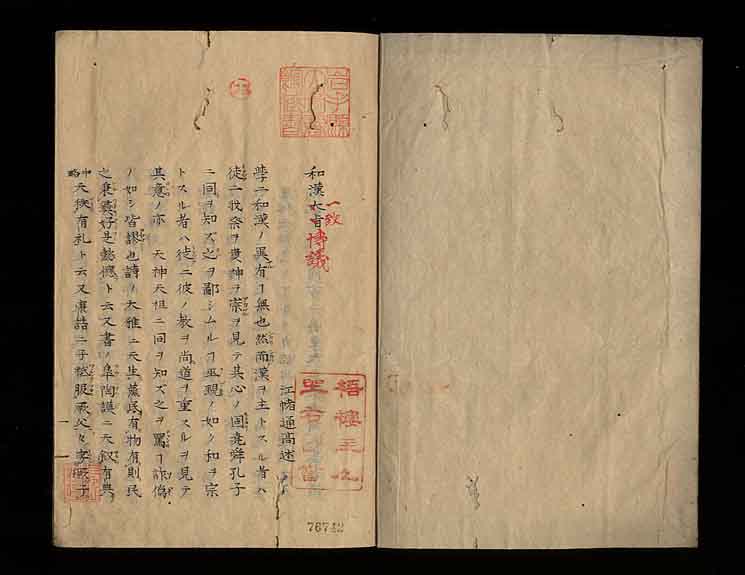 和漢大旨
一致
博議
江帾通高述
學ニ和漢ノ異有コ無也然而漢ヲ主トスル者ハ
徒ニ我祭ヲ貴神ヲ崇ヲ見テ其心ノ固堯舜孔子
ニ同ヲ知ズ之ヲ鄙シムルヲ巫覡ノ如ノ和ヲ宗
トスル者ハ徒ニ彼ノ教ヲ尚道ヲ重スルヲ見テ
其意ノ亦 天神天祖ニ同ヲ知ズ之ヲ罵コ
ノ如シ皆謬也詩ノ大雅ニ天生蒸民有物有則民
之秉彝好是懿德ト云又書ノ皐陶謨ニ天叙有典
中略
天秩有礼ト云又康誥ニ子祗服厥父
76742